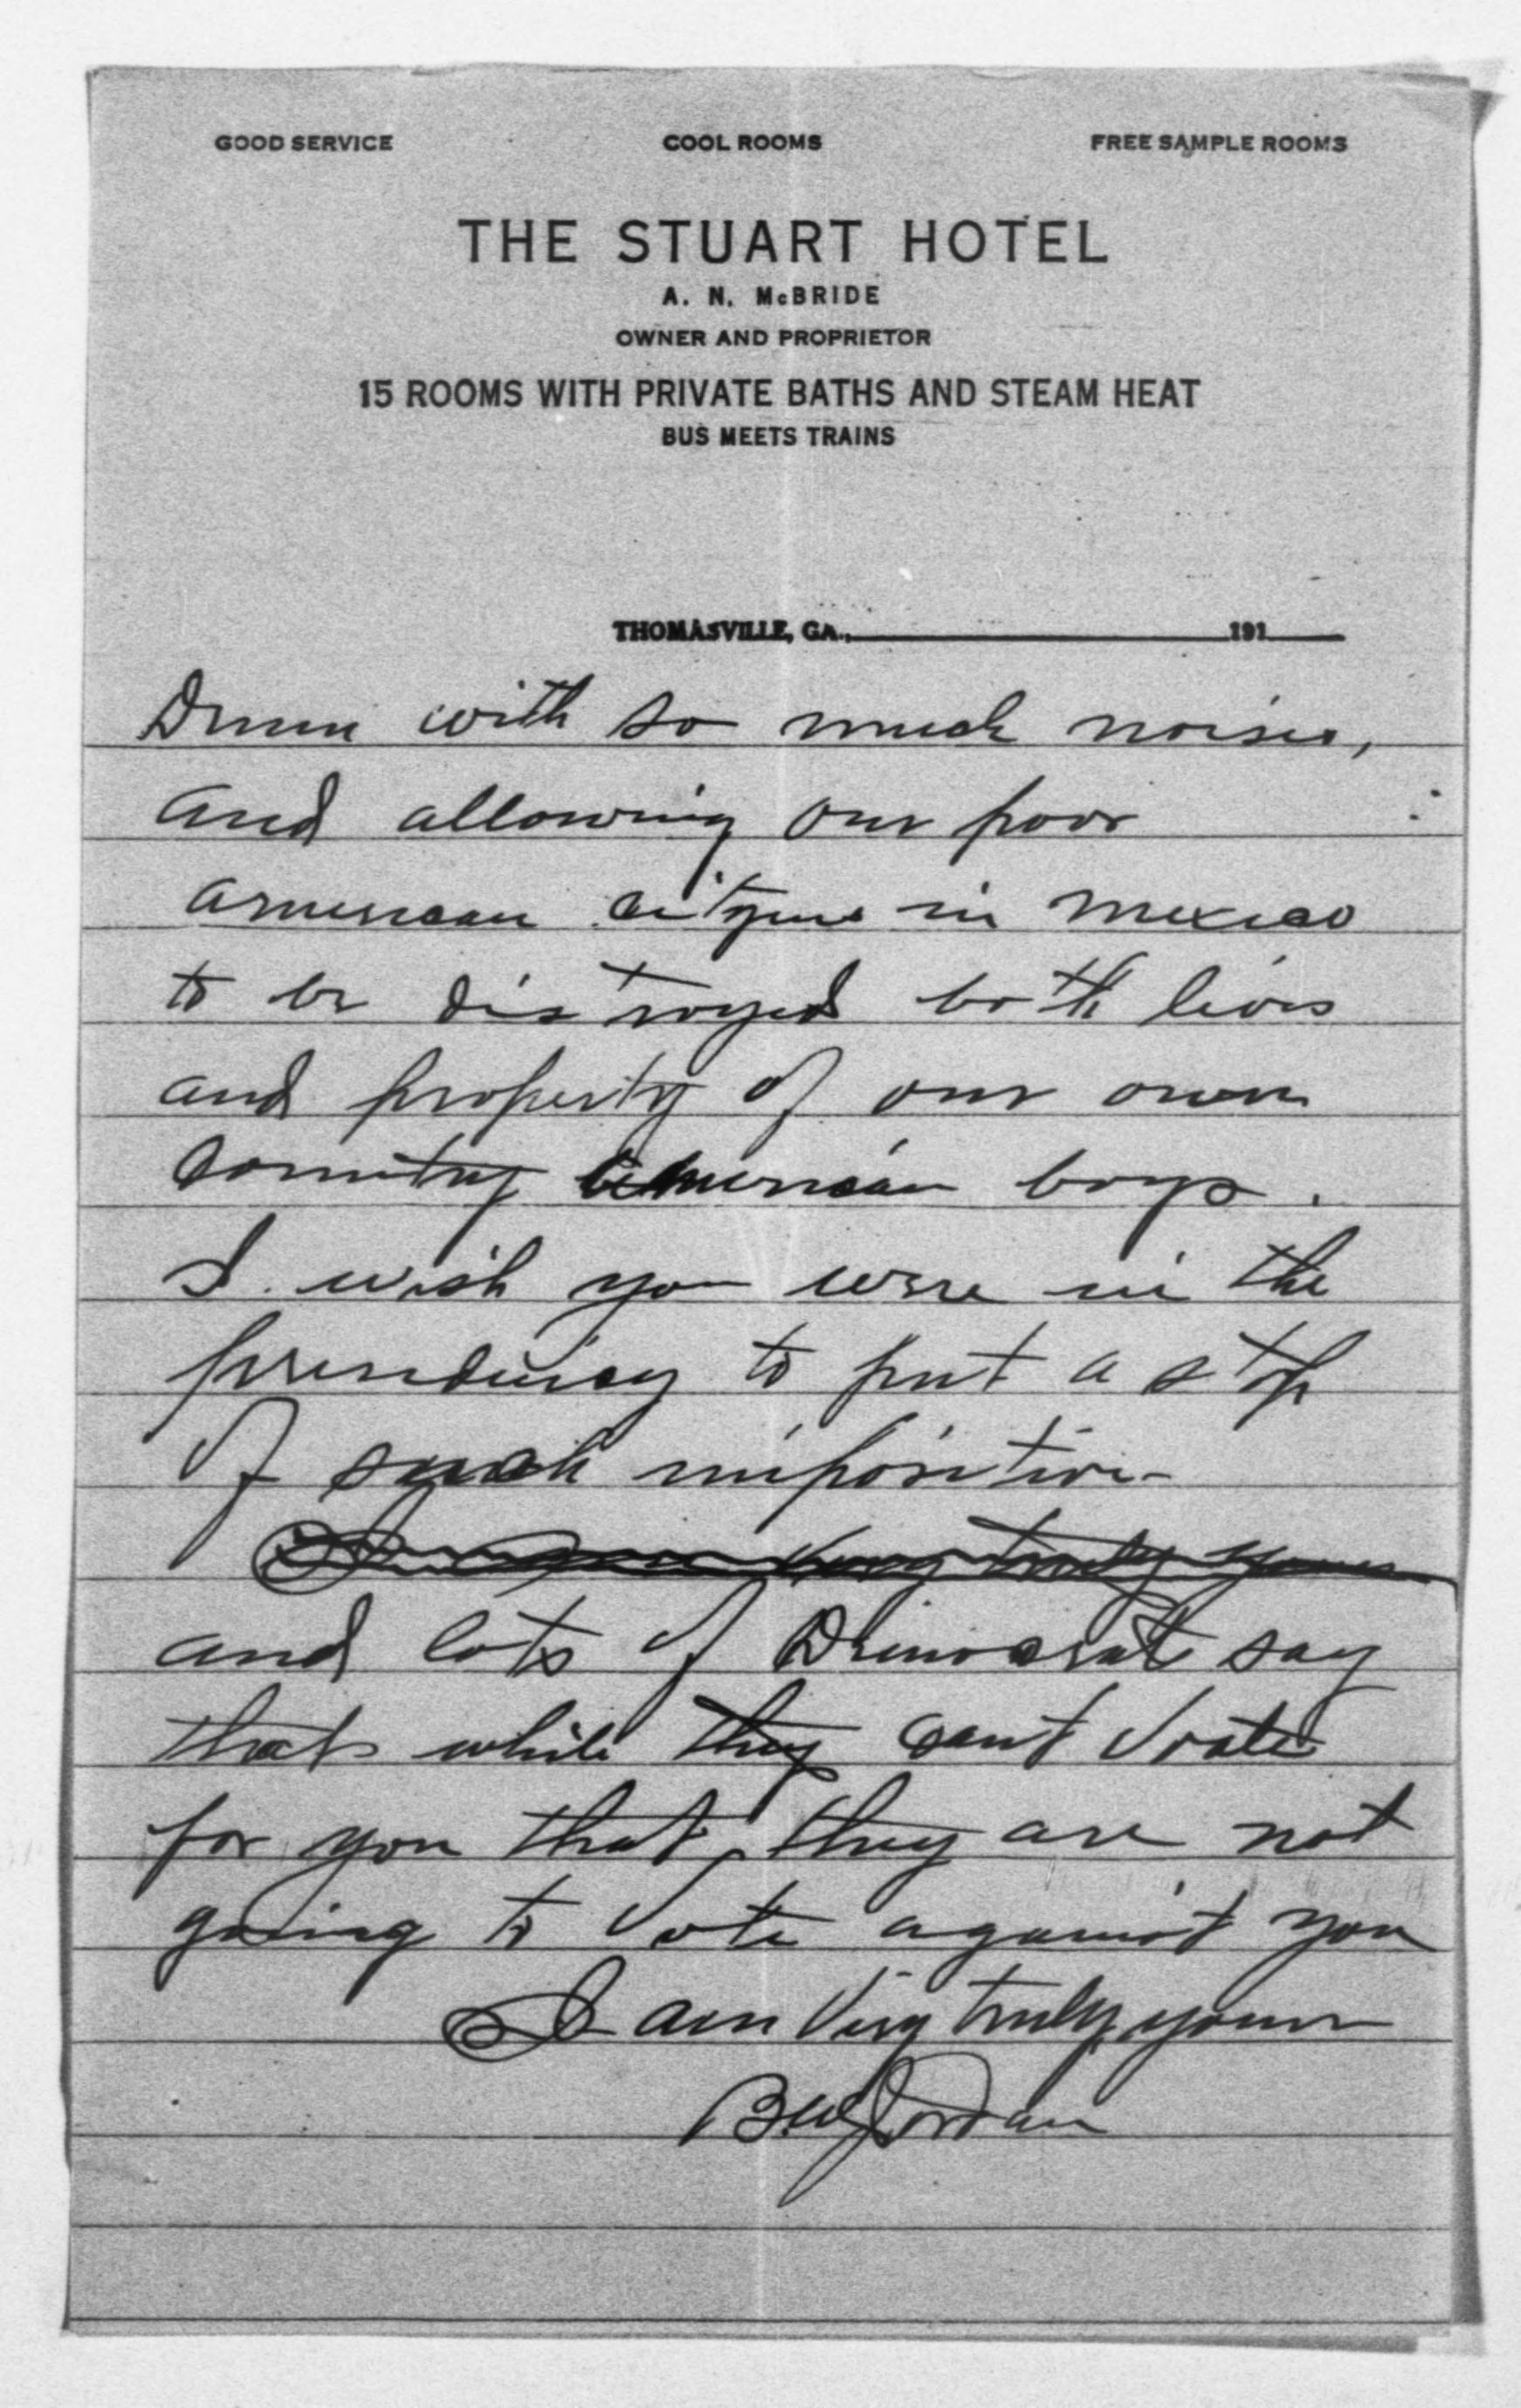 GOOD SERVICE COOL ROOMS FREE SAMPLE ROOMS
THE STUART HOTEL
A. N. McBRIDE
OWNER AND PROPRIETOR
15 ROOMS WITH PRIVATE BATHS AND STEAM HEAT
BUS MEETS TRAINS
THOMASVILLE, GA., 191
Drum with so much noise,
and allowing our poor
american citizens in mexico
to be distroyed both lives
and property of our own
Country American boys.
I wish you were in the
presidency to put a stop
of such imposition
I am very truly yours
and lots of Democrats say
that while they cant vote
for you that they are not
going to vote against you
I am Very truly yours
B.W. Jordan